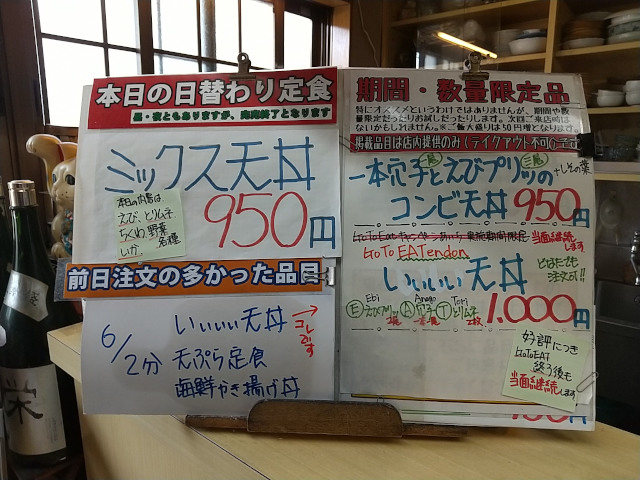 本日の日替わり定食
昼・夜ともありますが、売切終了となります
ミックス天丼
本日の内容は
えび、とりム子
ちくわ、野菜
いか、各種
950円
前日注文の多かった品目
6/2分
いいいい天丼
→コレです
天ぷら定食
海鮮かき揚げ丼
期間・数量限定品
特にオススメというわけではありませんが、期間や数
量限定だったりお試しだったりします。次回ご来店時に
はないかもしれません。※ご飯大盛りは50円増となります。
掲載品目は店内提供のみ(テイクアウト不可)
一本穴子とえびプリッの
+しその葉
コンビ天丼 950円
当面継続します
GoTo EATendon
いいいい天丼
どなたでも
注文可!!
Ebi Anago Tori
E えびプリッ A 穴子 T とりム子
1.000円
好評につき
GoToEAT
終了後も
当面継続します
栄